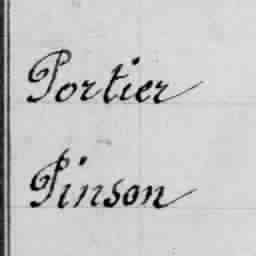 Portier
Pinson